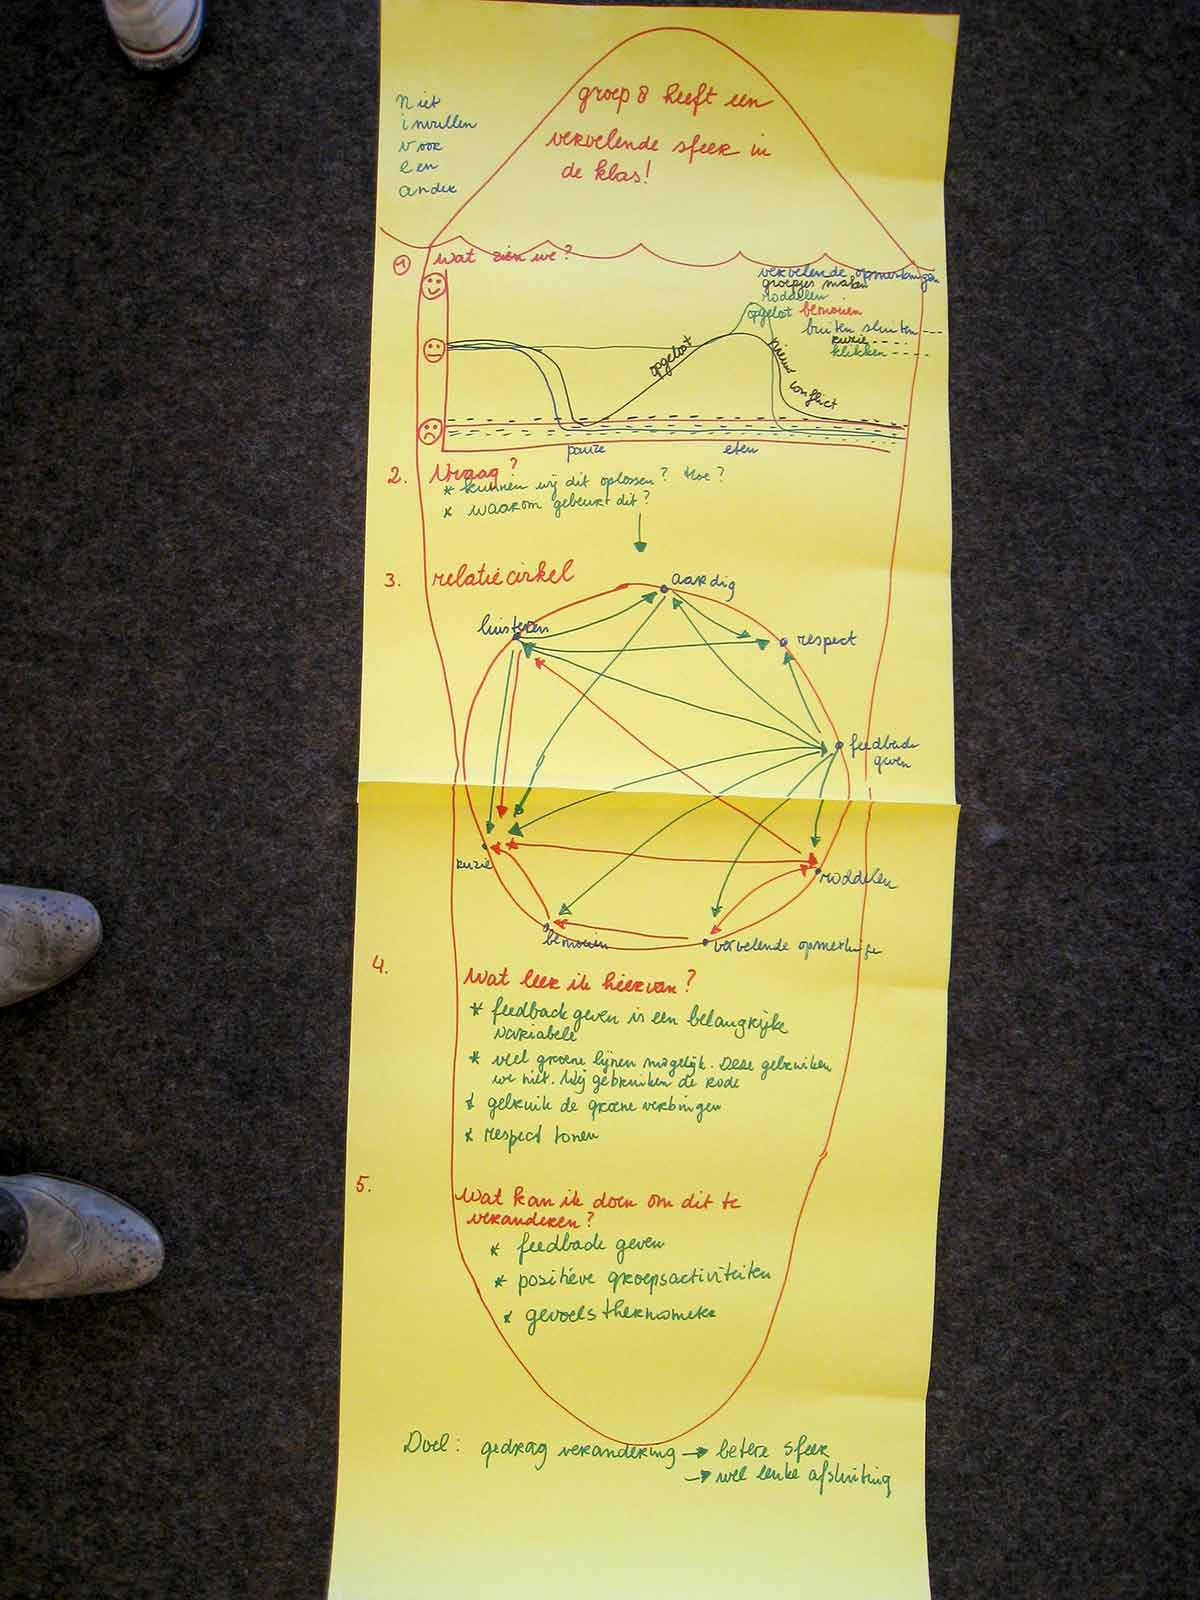 niet
invullen
voor
een
ander
groep 8 heeft een
vervelende sfeer in
de klas!
1 wat zien we?
vervelende opmerkingen
groepjes maken
roddelen
opgelost bemoeien
buiten sluiten ---
ruzie ----
klikken ----
opgelost
nieuw conflict
pauze
eten
2. Vraag?
* kunnen wij dit oplossen? Hoe?
* waarom gebeurt dit?
3. relatiecirkel
aardig
luisteren
respect
feedback
geven
ruzie
roddelen
bemoeien
vervelende opmerkinge
4.
Wat leer ik hiervan?
* feedback geven is een belangrijke
variabele
* veel groene lijnen mogelijk. Deze gebruiken
we niet. Wij gebruiken de rode
* gebruik de groene verbingen
* respect tonen
5.
Wat kan ik doen om dit te
veranderen?
* feedback geven
* positieve groepsactiviteiten
* gevoelsthermometer
Doel: gedrag verandering → betere sfeer
→ wel leuke afsluiting